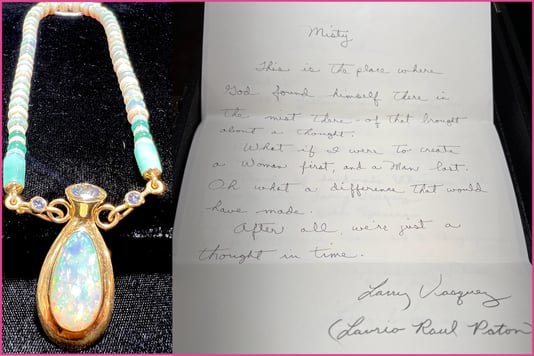 Misty
This is the place where
God found himself there in
the mist there - of that brought
about a thought.
What if I were to create
a Woman first, and a Man last.
Oh what a difference that would
have made.
After all, we're just a
thought in time.
Larry Vasquez
(Laurio Raul Paton)